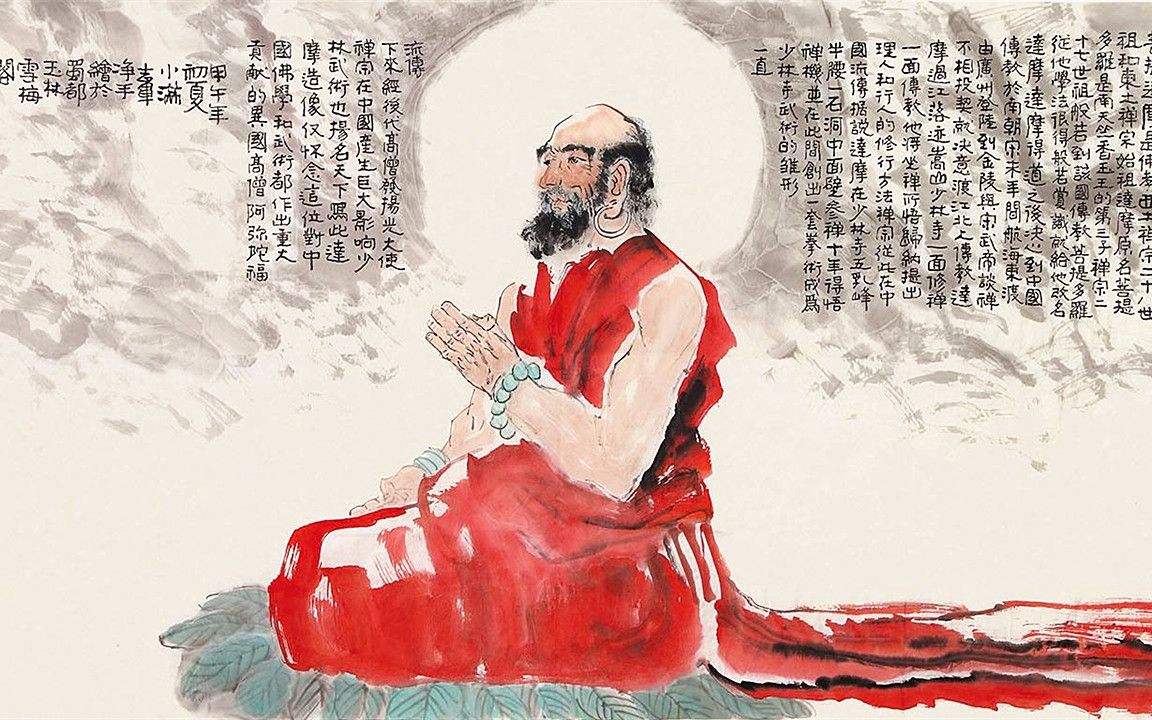 提達摩是佛教西土禪宗二十八世
祖和東土禪宗始祖達摩原名菩提
多羅是南天竺香至王的第三子禪宗二
十七世祖般若到該國傳教菩提多羅
從他學法很得般若賞識故給他改名
達摩達摩得道之後決心到中國
傳教於南朝宋末年間航海東渡
由廣州登陸到金陵與宋武帝談禪
不相投契故決意渡江北上傳教達
摩過江落迹嵩山少林寺一面修禪
一面傳教他將坐禪所悟歸納提出
理人和行人的修行方法禪宗從此在中
國流傳据說達摩在少林寺五乳峰
半腰一石洞中面壁參禪十年得悟
禪機並在此間創出一套拳術成爲
少林寺武術的雛形
一直
流傳
下來經後代高僧發揚光大使
禪宗在中國產生巨大影响少
林武術也揚名天下寫此達
摩造像仅怀念這位對中
國佛學和武術都作出重大
貢献的異國高僧阿弥陀福
甲午年
初夏
小滿
净手
繪於
蜀都
玉林
雪梅
閣